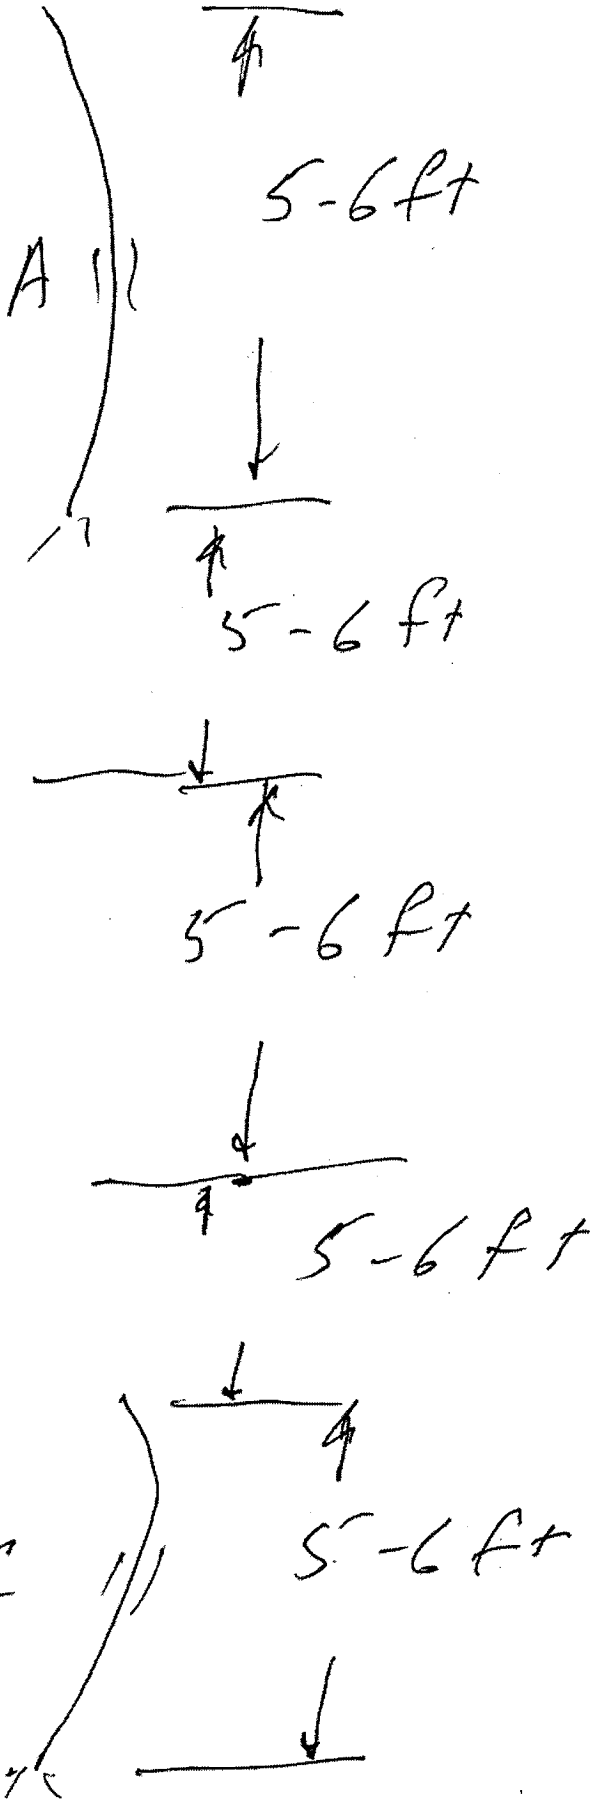 5-6 ft
A
5-6 ft
5-6 ft
5-6 ft
5-6 ft